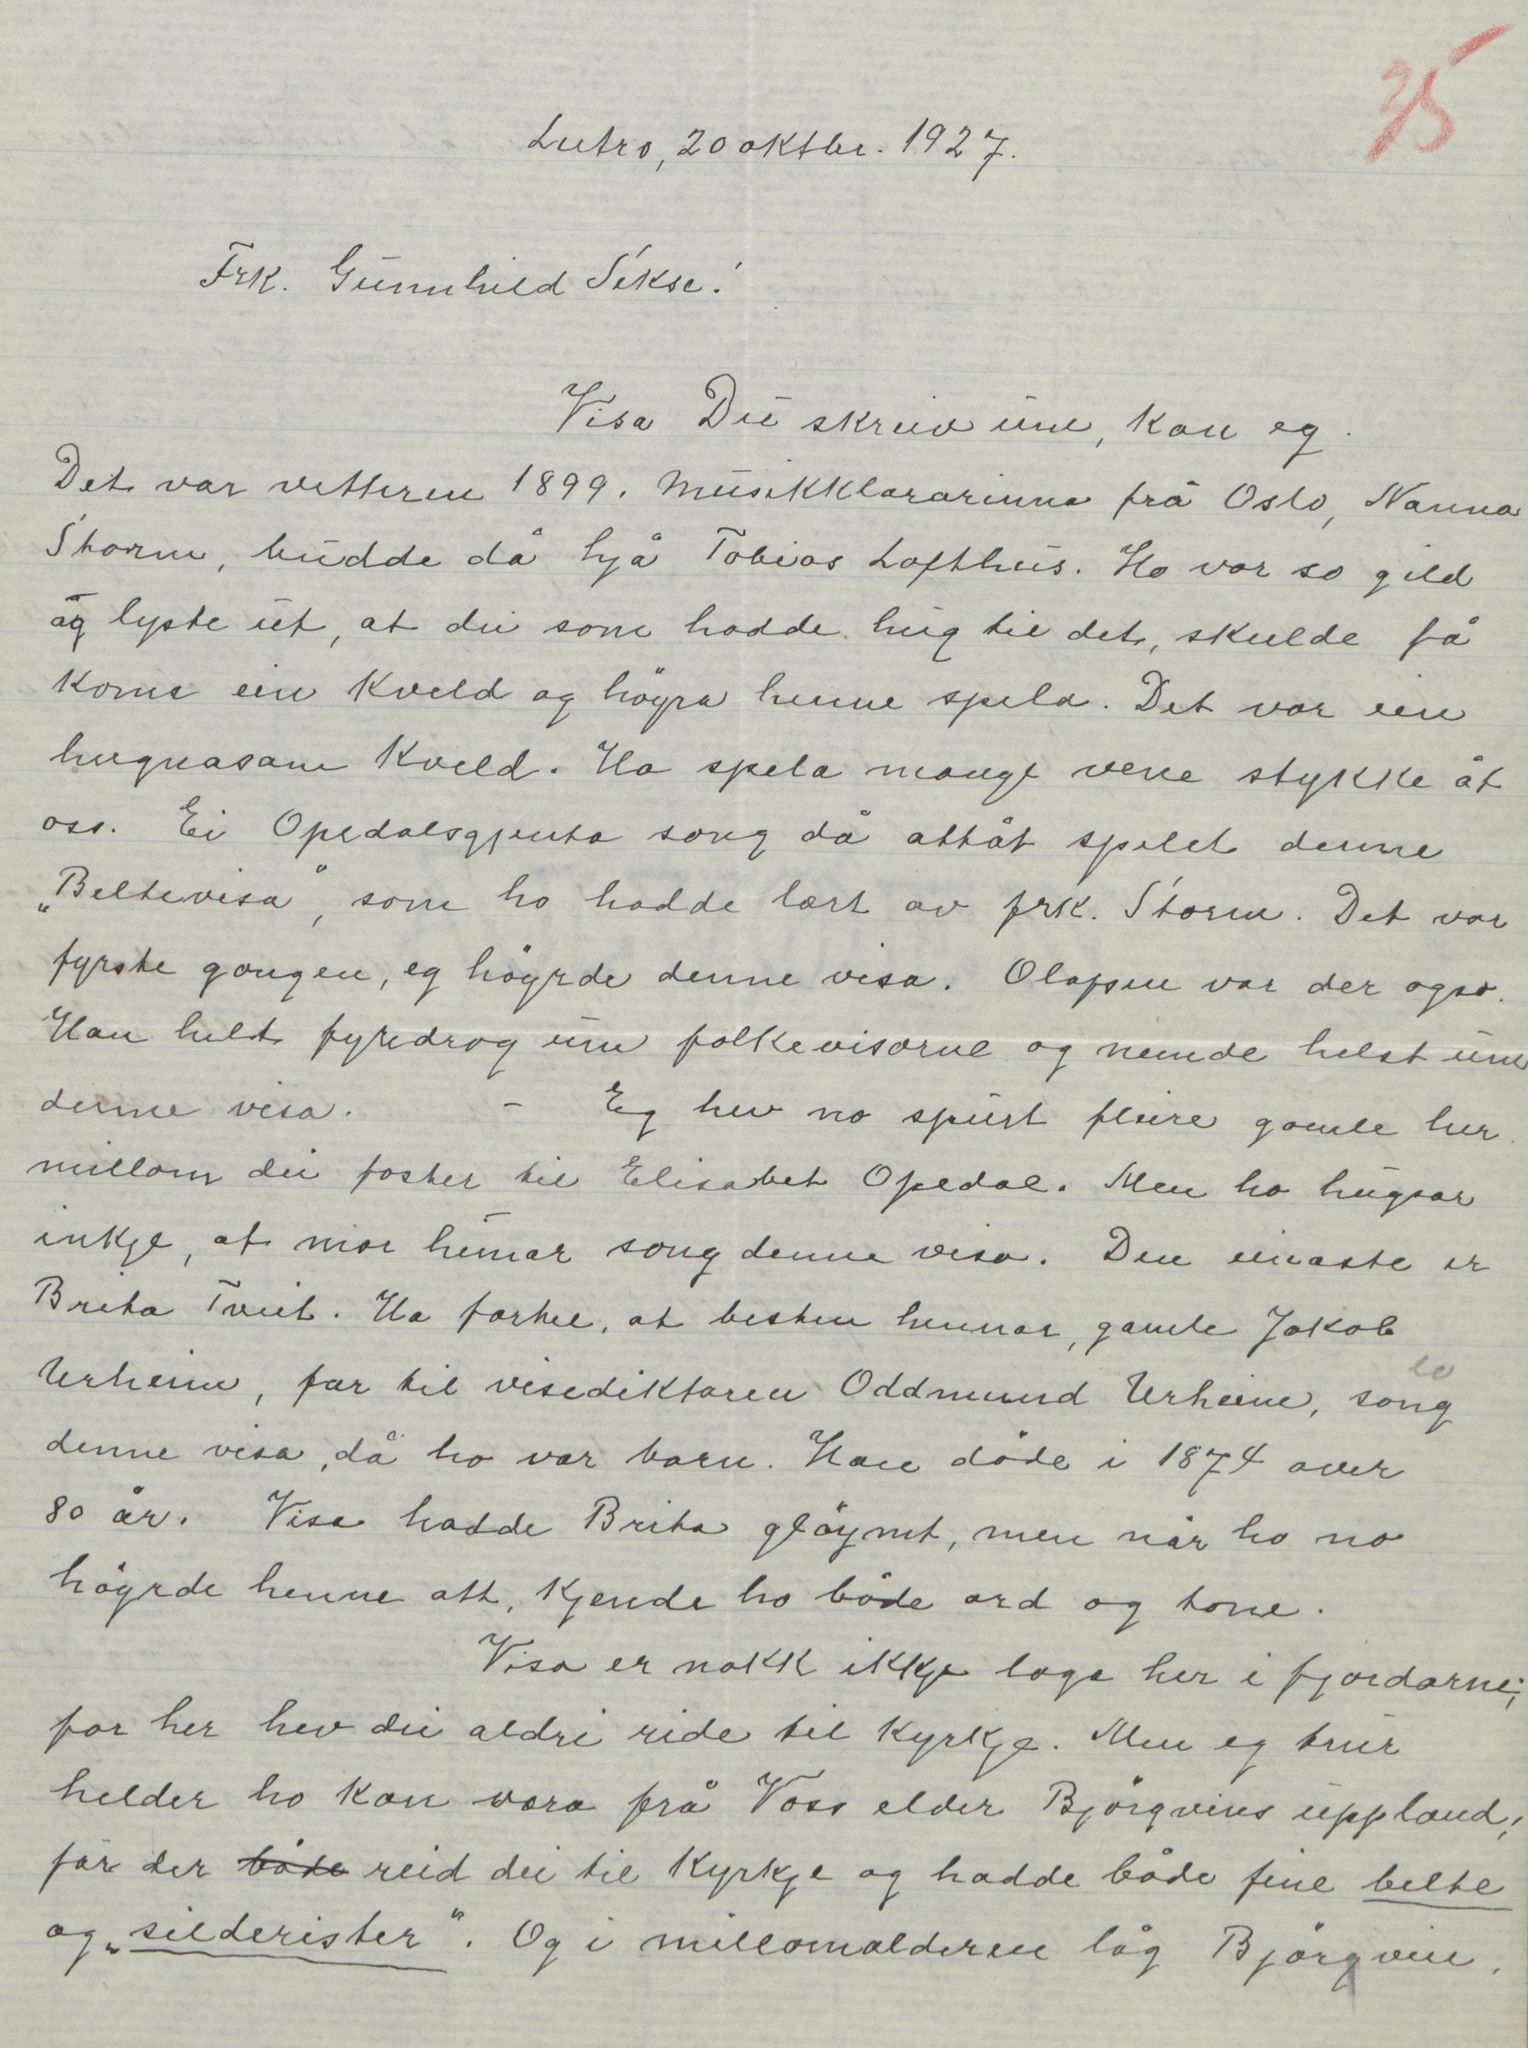 35
Lutro, 20 oktbr. 1927.
Frk. Gunnhild Sekse!
Visa Du skreiv um, kan eg.
Det var vetteren 1899. Musikklærarinna frå Oslo, Nanna
Storm, budde då hjå Tobias Lofthus. Ho var so gild
og lyste ut, at dei som hadde hug til det, skulde få
koma ein kveld og höyra henne spela. Det var ein
hugnasam kveld. Ho spela mange vene stykke åt
oss. Ei Opedalsgjenta song då attåt spelet denne
„Beltevisa“, som ho hadde lært av frk. Storm. Det var
fyrste gongen, eg höyrde denne visa. Olafsen var der ogso.
Han heldt fyredrag um folkevisorne og nemde helst um
denne visa. – Eg hev no spurt fleire gamle her
millom dei faster til Elisabet Opedal. Men ho hugsar
inkje, at mor hennar song denne visa. Den einaste er
Brita Tveit. Ho fortel, at besten hennar, gamle Jakob
Urheim, far til visediktaren Oddmund Urheim, song
denne visa, då ho var barn. Han döde i 1874 over
80 år. Visa hadde Brita glöymt, men når ho no
höyrde henne att, kjende ho både ord og tone.
Visa er nokk ikkje laga her i fjordarne;
for her hev dei aldri ride til kyrkje. Men eg trur
helder ho kan vera frå Voss elder Björgvins uppland;
for der både reid dei til kyrkje og hadde både fine belte
og „silderister“. Og i millomalderen låg Björgvin